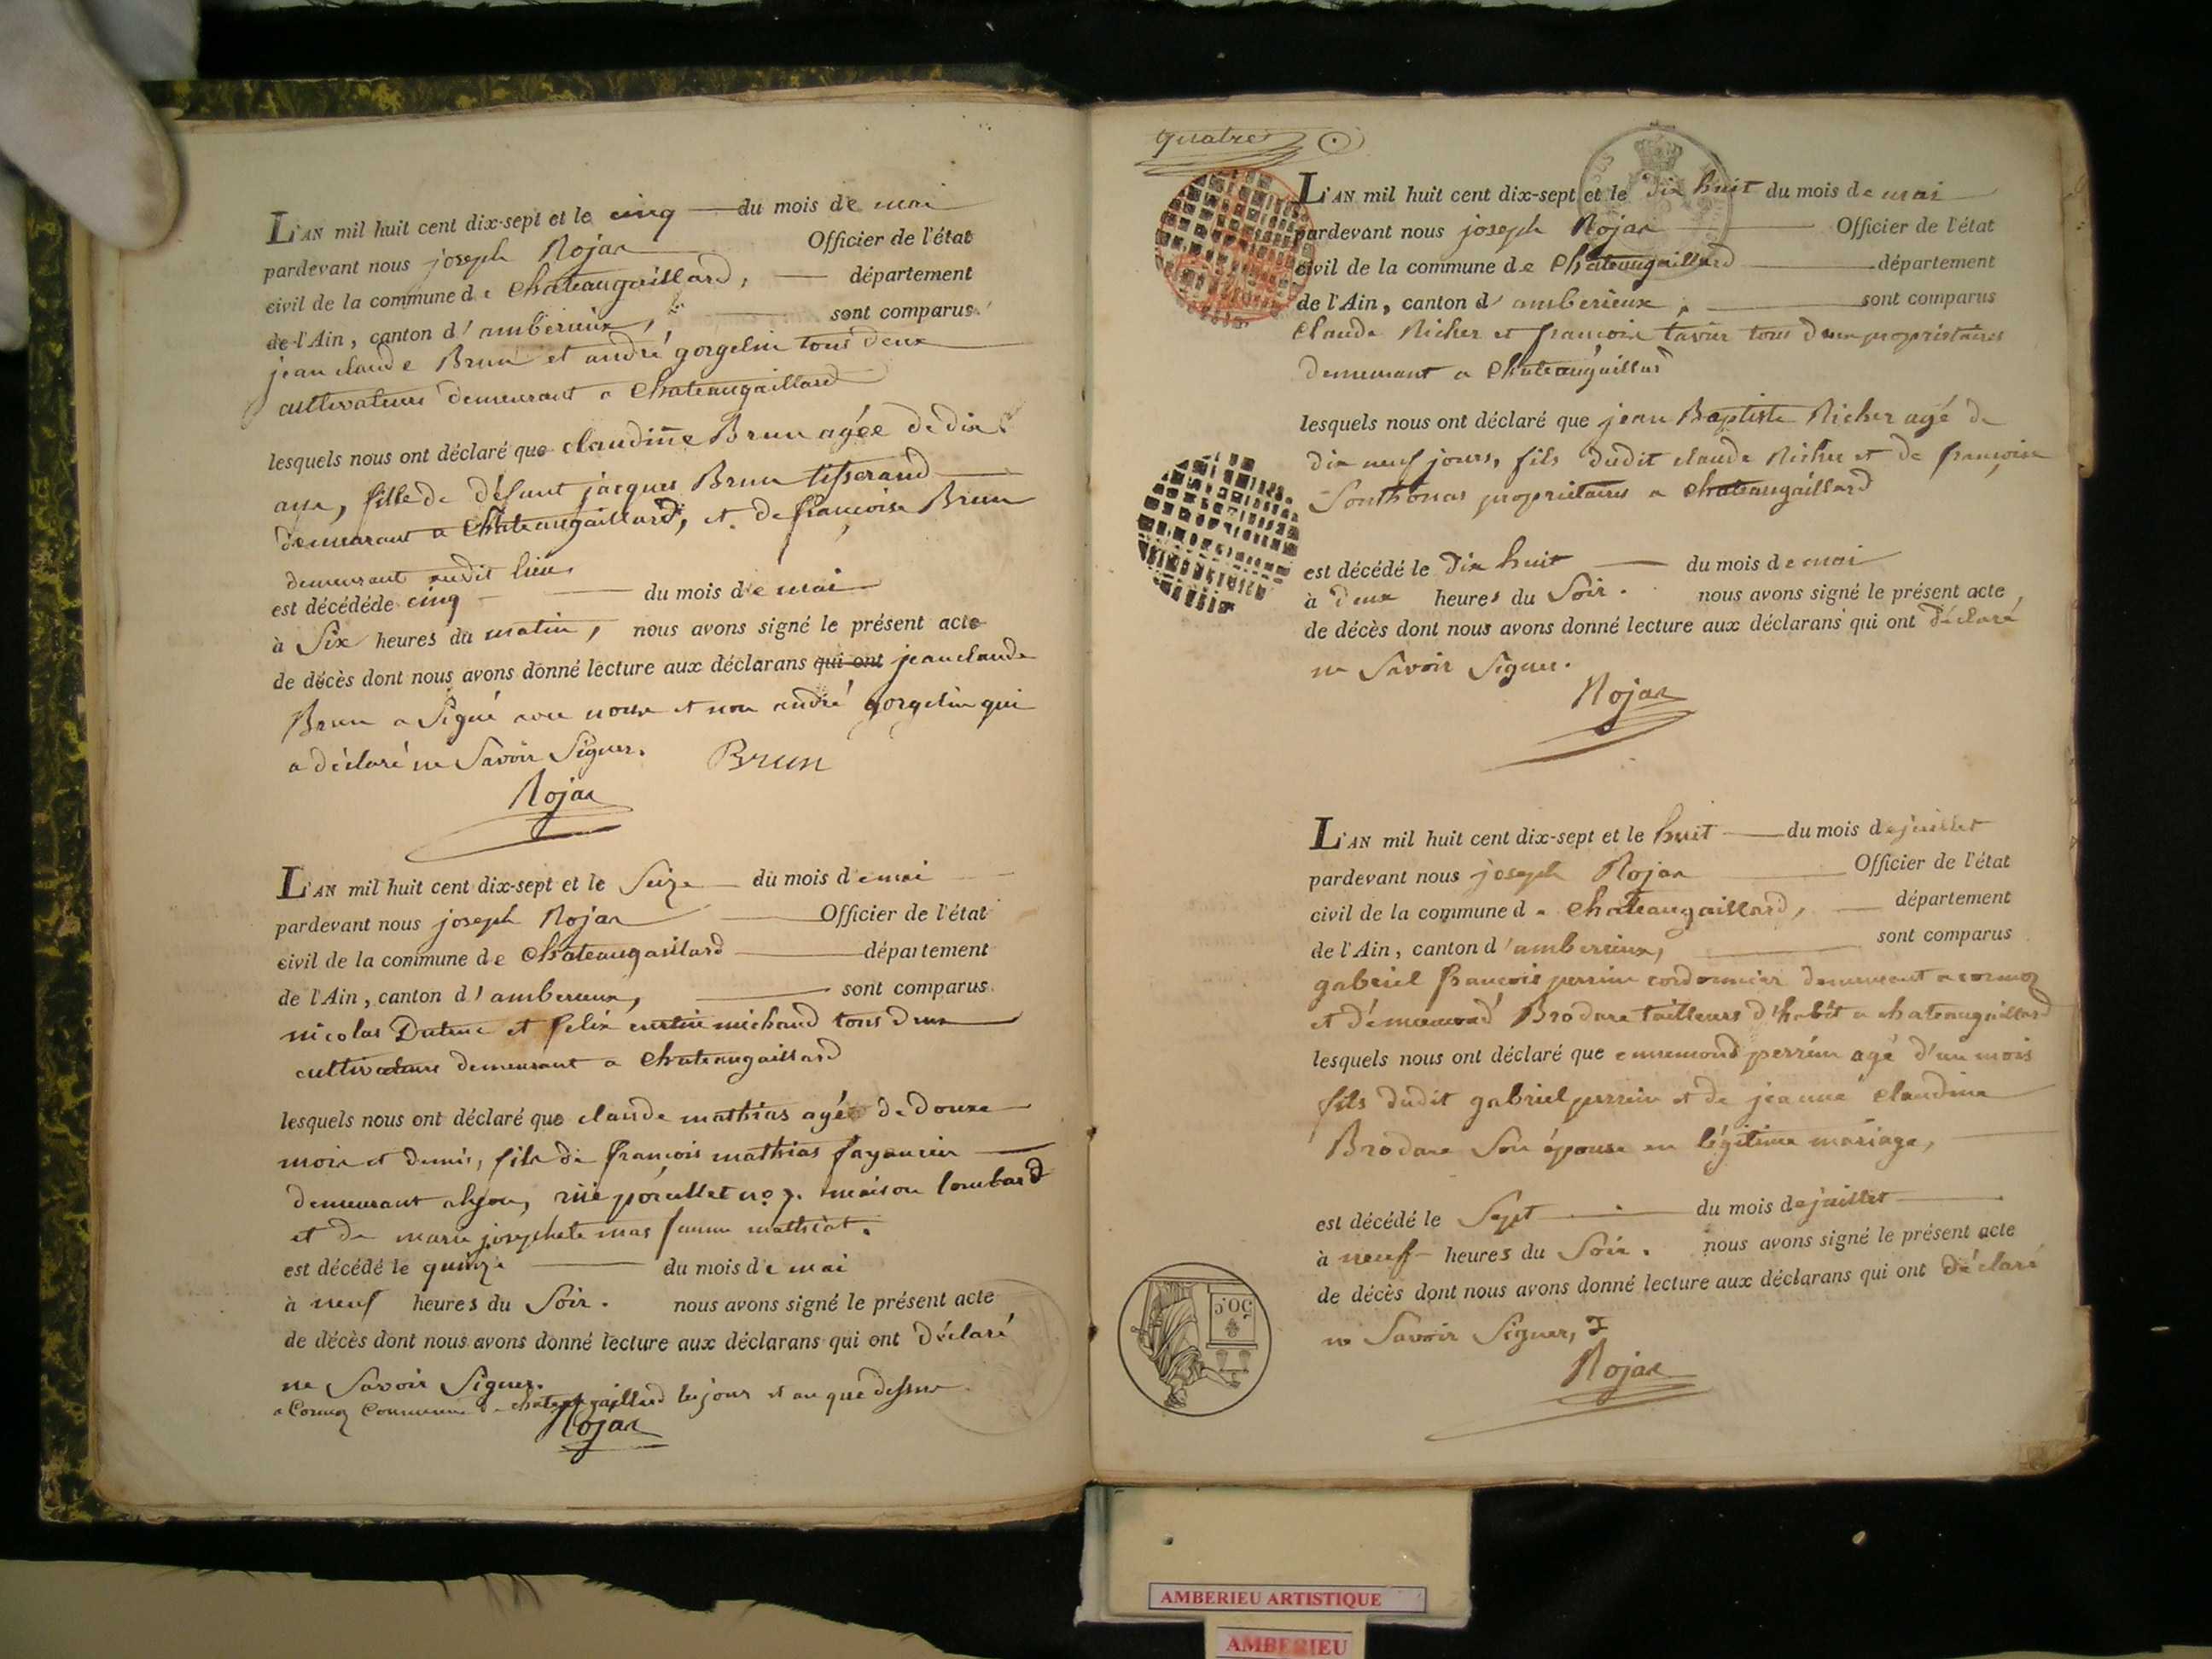 L'AN mil huit cent dix-sept et le cinq du mois de mai
pardevant nous joseph Rojar Officier de l'état
civil de la commune de Chateaugaillard, département
de l'Ain, canton d'amberieux, sont comparus
jean claude Brun et andré gorgelin tous deux
cultivateurs demeurant a Chateaugaillard
lesquels nous ont déclaré que claudine Brun agée de dix
ans, fille de défunt jacques Brun tisserand
demeurant a Chateaugaillard, et de françoise Brun
demeurant audit lieu
est décédé de cinq du mois de mai
à Six heures du matin, nous avons signé le présent acte
de décès dont nous avons donné lecture aux déclarans qui ont jean claude
Brun a Signé avec nous et non andré gorgelin qui
a déclaré ne Savoir Signer. Brun
Rojar
L'AN mil huit cent dix-sept et le Seize du mois de mai
pardevant nous joseph Rojar Officier de l'état
civil de la commune de Chateaugaillard département
de l'Ain, canton d'amberieux, sont comparus
nicolas et felix michaud tous deux
cultivateurs demeurant a Chateaugaillard
lesquels nous ont déclaré que claude mathias agé de douze
mois et demi, fils de francois mathias fayancier
demeurant a lyon, rue no 7. maison lombard
et de marie josephete mas femme mathiat.
est décédé le quinze du mois de mai
à neuf heures du Soir. nous avons signé le présent acte
de décès dont nous avons donné lecture aux déclarans qui ont déclaré
ne Savoir Signer.
a Cormoz Commune de chateaugaillard les jour et an que dessus
Rojar
quatre
L'AN mil huit cent dix-sept et le dix huit du mois de mai
pardevant nous joseph Rojar Officier de l'état
civil de la commune de Chateaugaillard département
de l'Ain, canton d'amberieux, sont comparus
Claude Richer et francois tavier tous deux propriétaires
demeurant a Chateaugaillard
lesquels nous ont déclaré que jean Baptiste Richer agé de
dix neuf jours, fils dudit claude Richer et de françoise
Sonthonas propriétaires a Chateaugaillard
est décédé le dix huit du mois de mai
à deux heures du Soir. nous avons signé le présent acte
de décès dont nous avons donné lecture aux déclarans qui ont déclaré
ne Savoir Signer.
Rojar
L'AN mil huit cent dix-sept et le huit du mois de juillet
pardevant nous joseph Rojar Officier de l'état
civil de la commune de Chateaugaillard, département
de l'Ain, canton d'amberieux, sont comparus
gabriel francois perrin cordonnier demeurant a cormoz
et Brodare tailleurs d'habit a chateaugaillard
lesquels nous ont déclaré que ennemond perrin agé d'un mois
fils dudit gabriel perrin et de jeanne claudine
Brodare Son épouse en légitime mariage,
est décédé le Sept du mois de juillet
à neuf heures du Soir. nous avons signé le présent acte
de décès dont nous avons donné lecture aux déclarans qui ont déclaré
ne Savoir Signer,
Rojar
50.C
AMBERIEU ARTISTIQUE
AMBERIEU